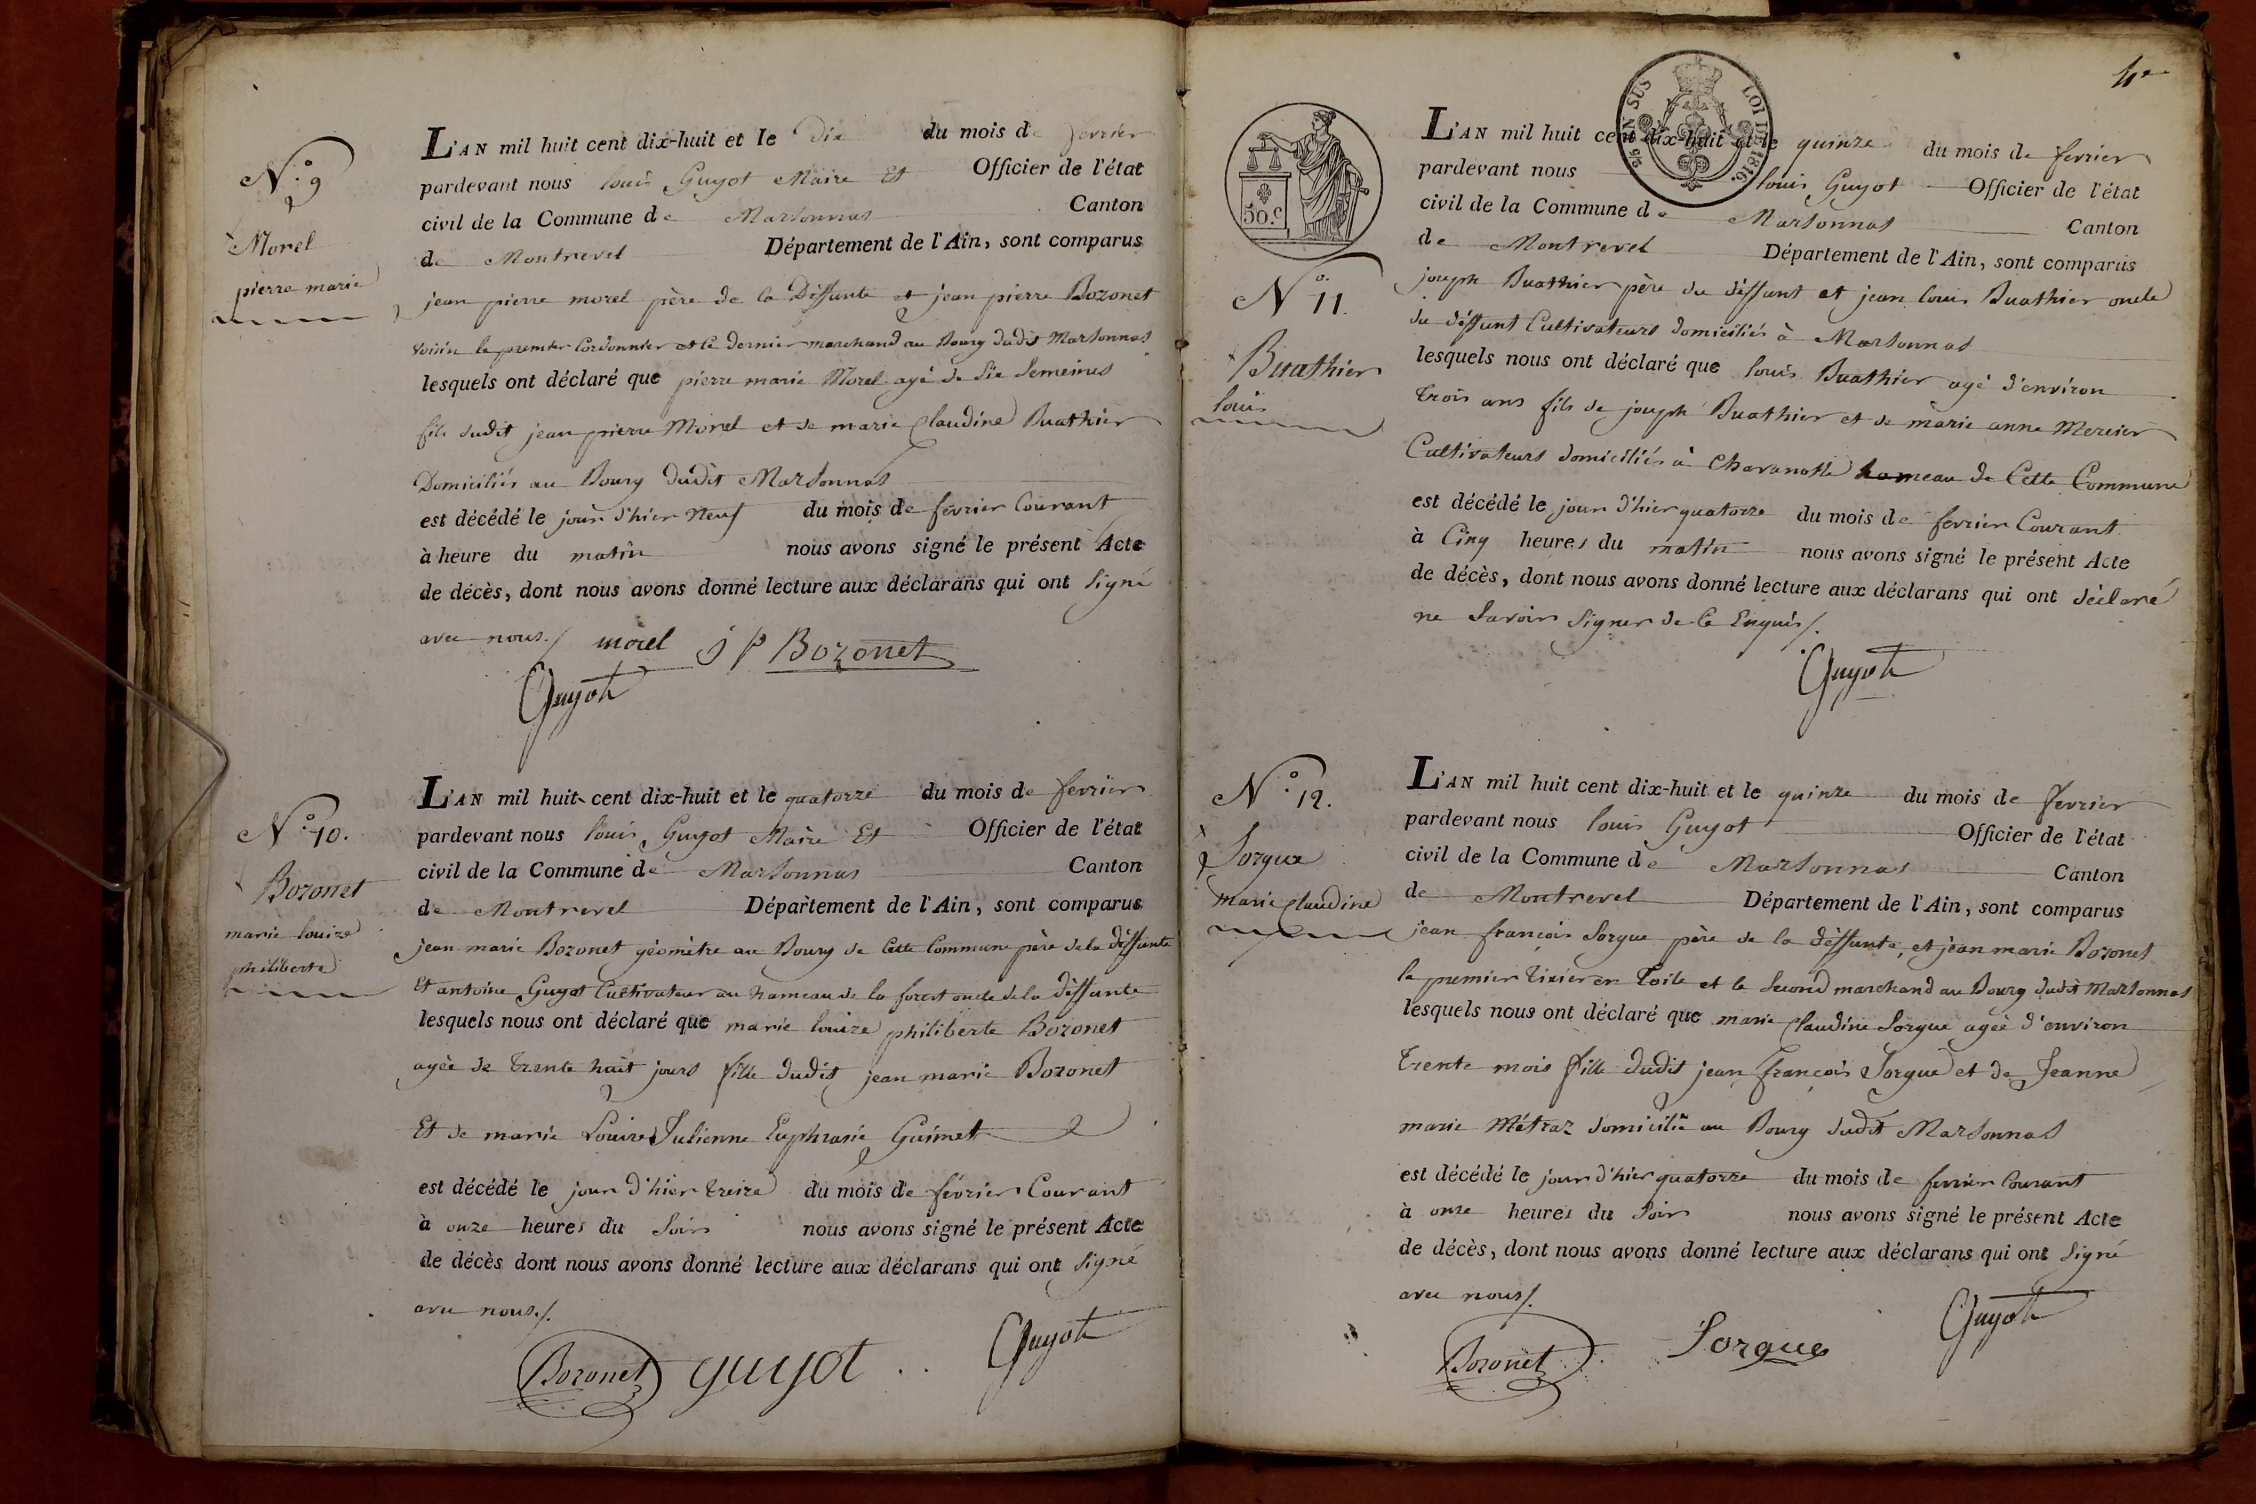 N° 9
Morel
pierre marie
L'AN mil huit cent dix-huit et le dix du mois de fevrier
pardevant nous louis Guyot Maire Et Officier de l'état
civil de la Commune de Marsonnas Canton
de Montrevel Département de l'Ain, sont comparus
jean pierre morel père de la Deffunte et jean pierre Bozonet
voisin le premier Cordonnier et le dernier marchand au Bourg dudit Marsonnas
lesquels ont déclaré que pierre marie Morel agé de Six Semeines
fils dudit jean pierre Morel et de marie Claudine Buathier
Domiciliés au Bourg dudit Marsonnas
est décédé le jour d'hier Neuf du mois de février Courant
à heure du matin nous avons signé le présent Acte
de décès, dont nous avons donné lecture aux déclarans qui ont Signé
avec nous./. morel J P Bozonet
Guyot
N° 10.
Bozonet
marie louize
philiberte
L'AN mil huit cent dix-huit et le quatorze du mois de fevrier
pardevant nous louis Guyot Maire Et Officier de l'état
civil de la Commune de Marsonnas Canton
de Montrevel Département de l'Ain, sont comparus
jean marie Bozonet géomètre au Bourg de Cette Commune père de la deffunte
Et antoine Guyot Cultivateur au hameau de la forest oncle de la deffunte
lesquels nous ont déclaré que marie louize philiberte Bozonet
agée de trente huit jours fille dudit jean marie Bozonet
Et de marie Louize Julienne Euphrasie Guimet
est décédé le jour d'hier treize du mois de février Courant
à onze heures du Soir nous avons signé le présent Acte
de décès dont nous avons donné lecture aux déclarans qui ont Signé
avec nous./.
Bozonet guyot Guyot
4e
50.c
EN SUS LOI DE 1816.
N° 11.
Buathier
louis
L'AN mil huit cent dix-huit et le quinze du mois de fevrier
pardevant nous louis Guyot Officier de l'état
civil de la Commune de Marsonnas Canton
de Montrevel Département de l'Ain, sont comparus
joseph Buathier père du deffunt et jean louis Buathier oncle
du deffunt Cultivateurs domiciliés à Marsonnas
lesquels nous ont déclaré que louis Buathier agé d'environ
trois ans fils de joseph Buathier et de marie anne Mercier
Cultivateurs domiciliés à Chavanosse hameau de Cette Commune
est décédé le jour d'hier quatorze du mois de fevrier Courant
à Cinq heures du matin nous avons signé le présent Acte
de décès, dont nous avons donné lecture aux déclarans qui ont déclaré
ne Savoir Signer de Ce Enquis/.
Guyot
N° 12.
Sorgue
marie Claudine
L'AN mil huit cent dix-huit et le quinze du mois de fevrier
pardevant nous louis Guyot Officier de l'état
civil de la Commune de Marsonnas Canton
de Montrevel Département de l'Ain, sont comparus
jean françois Sorgue père de la deffunte, et jean marie Bozonet
le premier tixier en toile et le Second marchand au Bourg dudit Marsonnas
lesquels nous ont déclaré que marie Claudine Sorgue agée d'environ
trente mois fille dudit jean françois Sorgue et de Jeanne
marie Métraz domiciliée au Bourg dudit Marsonnas
est décédé le jour d'hier quatorze du mois de fevrier Courant
à onze heures du Soir nous avons signé le présent Acte
de décès, dont nous avons donné lecture aux déclarans qui ont Signé
avec nous/.
Bozonet Sorgue Guyot